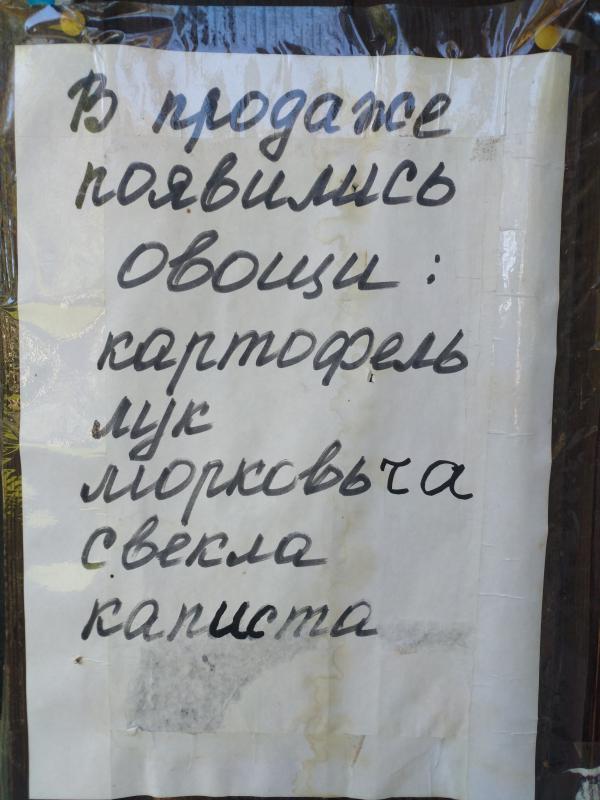 В продаже
появились
овощи:
картофель
лук
морковьча
свекла
каписта